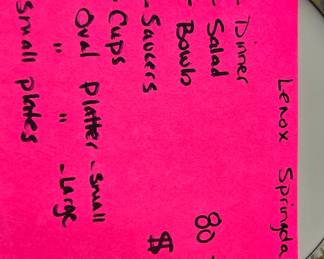 Lenox Springda
- Dinner
- Salad
- Bowls
- Saucers
- Cups
Oval Platter - Small
" " - Large
small plates
80
$